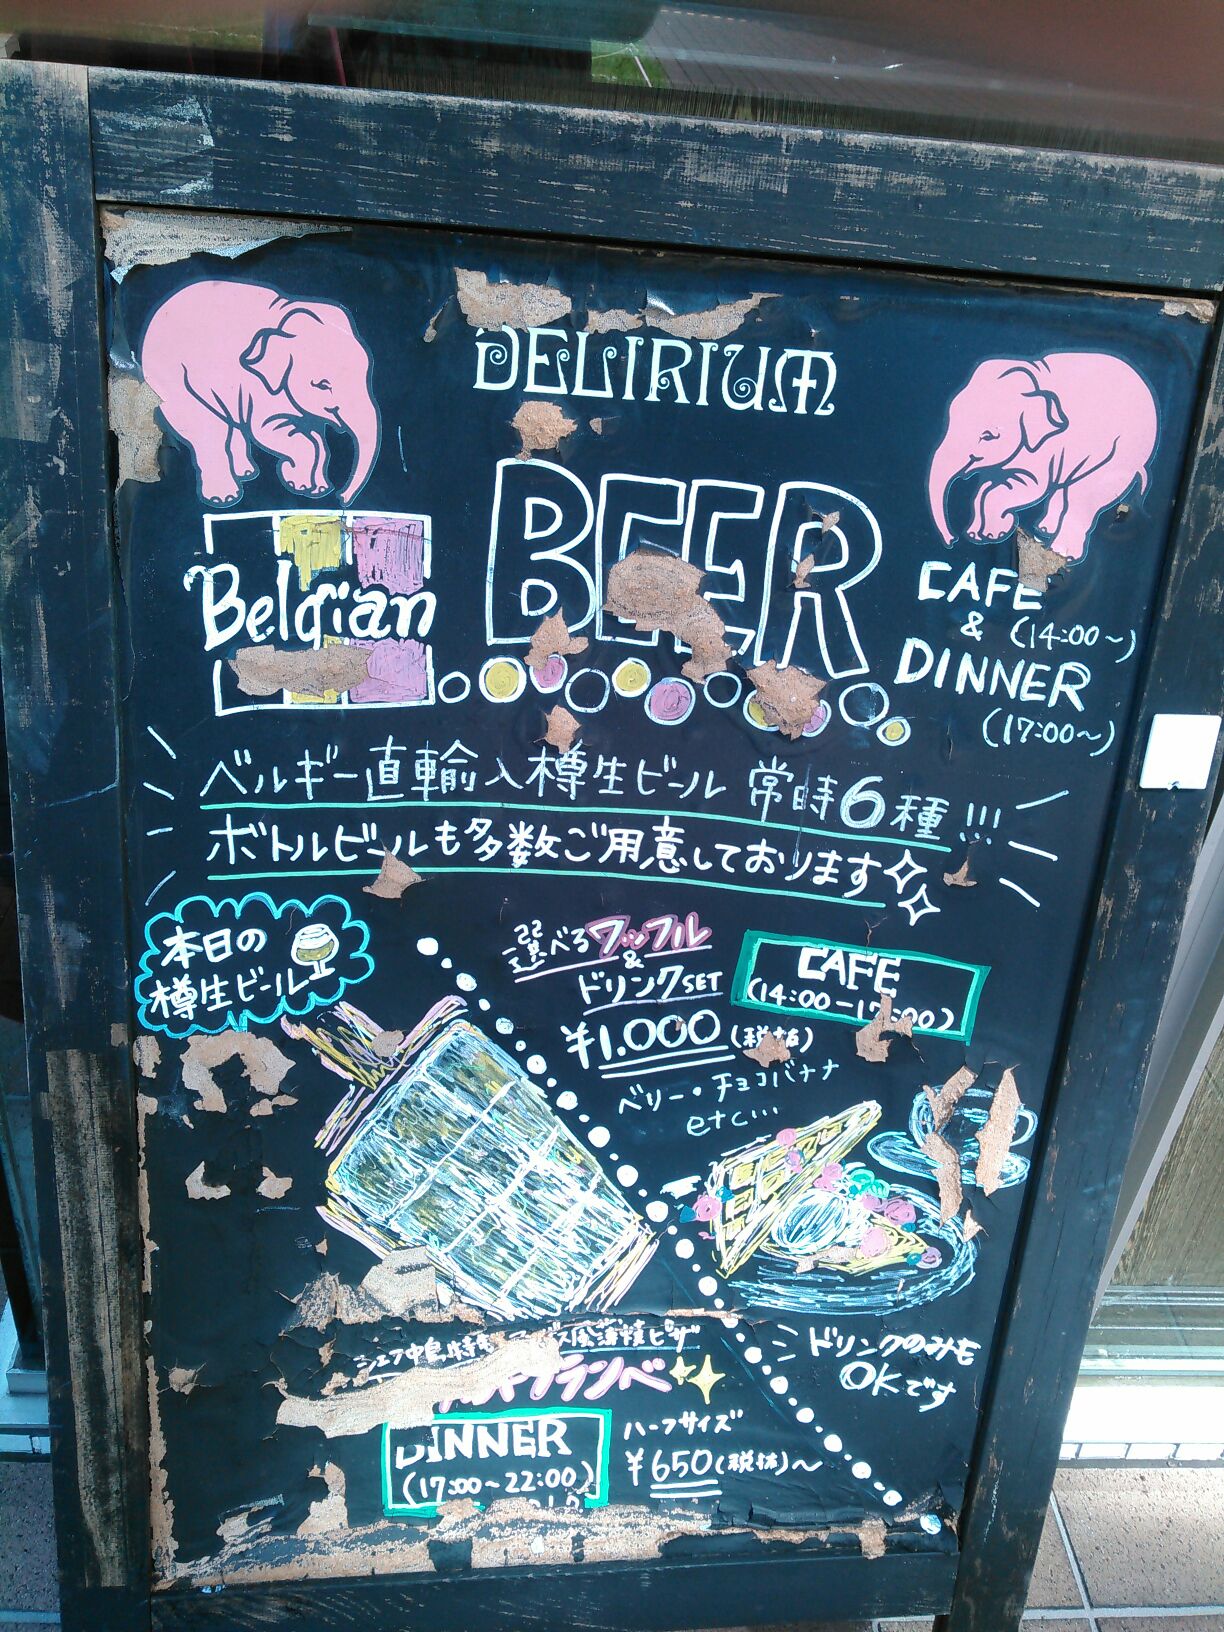 DELIRIUM
BEER
Belgian
CAFE
& (14:00〜)
DINNER
(17:00〜)
ベルギー直輸入樽生ビール 常時6種!!!
ボトルビールも多数ご用意しております
本日の
樽生ビール
選べるワッフル
&
ドリンクSET
¥1.000(税抜)
ベリー・チョコバナナ
etc...
CAFE
(14:00-17:00)
シェフ中島特製 風薄焼ピザ
フランベ
DINNER
(17:00〜22:00)
ハーフサイズ
¥650(税抜)〜
ドリンクのみも
OKです